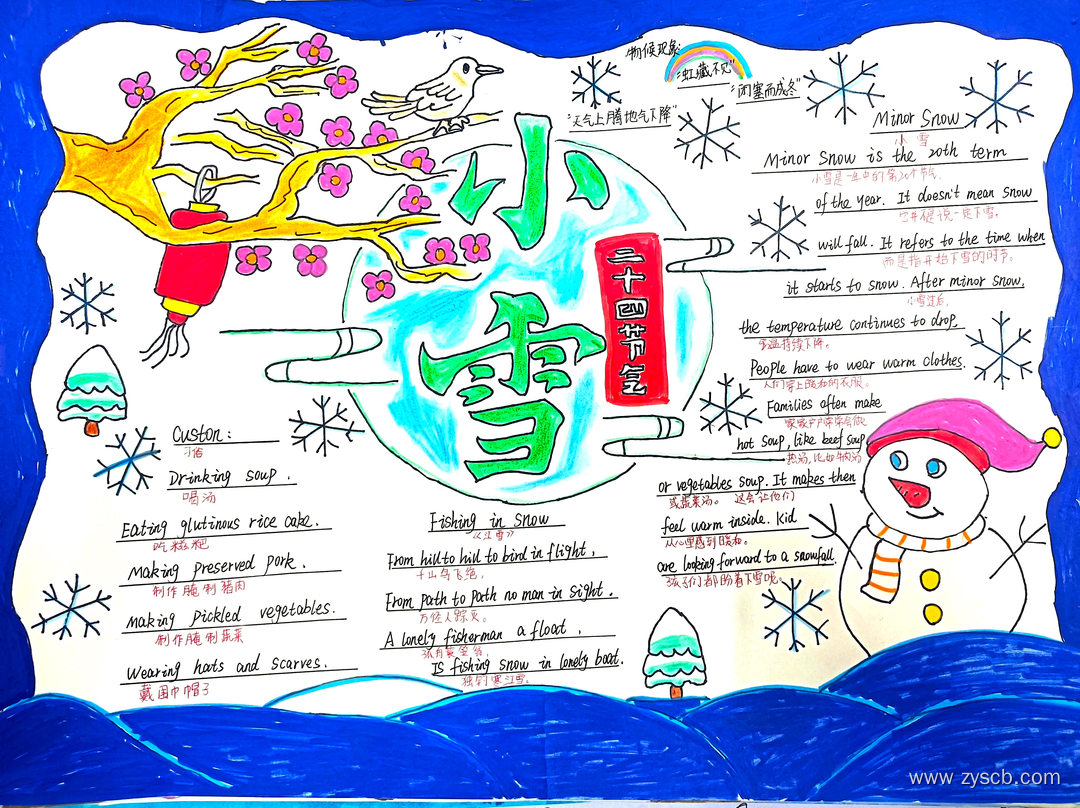 物候现象:
"虹藏不见"
"天气上腾地气下降"
"闭塞而成冬"
小雪
二十四节气
Minor Snow
小雪
Minor Snow is the 20th term
小雪是一年中的第20个节气.
of the year. It doesn't mean snow
它并不是说一定下雪.
will fall. It refers to the time when
而是指开始下雪的时节.
it starts to snow. After minor snow,
小雪过后,
the temperature continues to drop.
气温持续下降.
People have to wear warm clothes.
人们穿上暖和的衣服.
Families often make
家家户户常常会做
hot soup, like beef soup
热汤,比如牛肉汤
or vegetables soup. It makes then
或蔬菜汤. 这会让他们
feel warm inside. Kid
从心里感到暖和.
are looking forward to a snowfall.
孩子们都盼着下雪呢.
Custon:
习俗
Drinking soup.
喝汤
Eating glutinous rice cake.
吃糍粑
Making preserved pork.
制作腌制猪肉
Making pickled vegetables.
制作腌制蔬菜
Wearing hats and scarves.
戴围巾帽子
Fishing in snow
《江雪》
From hill to hill to bird in flight,
千山鸟飞绝,
From path to path no man in sight.
万径人踪灭.
A lonely fisherman a float,
孤舟蓑笠翁,
Is fishing snow in lonely boat.
独钓寒江雪.
www.zyscb.com